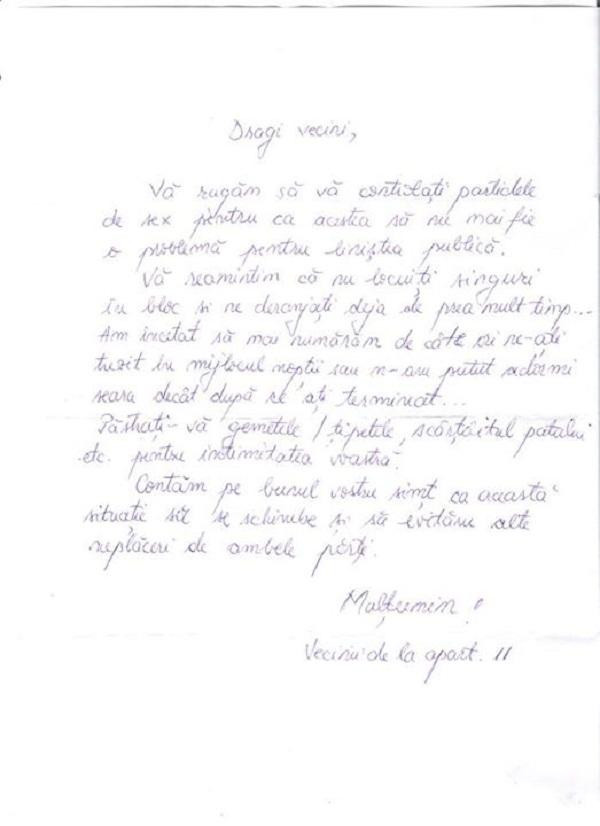 Dragi vecini,
Vă rugăm să vă controlați partidele
de sex pentru ca acestea să nu mai fie
o problemă pentru liniștea publică.
Vă reamintim că nu locuiți singuri
în bloc si ne deranjați deja de prea mult timp...
Am încetat să mai numărăm de câte ori ne-ați
trezit în mijlocul nopții sau n-am putut adormi
seara decât după ce ați terminat...
Păstrați-vă gemetele / țipetele, scârțâitul patului
etc. pentru intimitatea voastră.
Contăm pe bunul vostru simț ca această
situație să se schimbe și să evităm alte
neplăceri de ambele părți.
Mulțumim!
Vecinii de la apart. 11